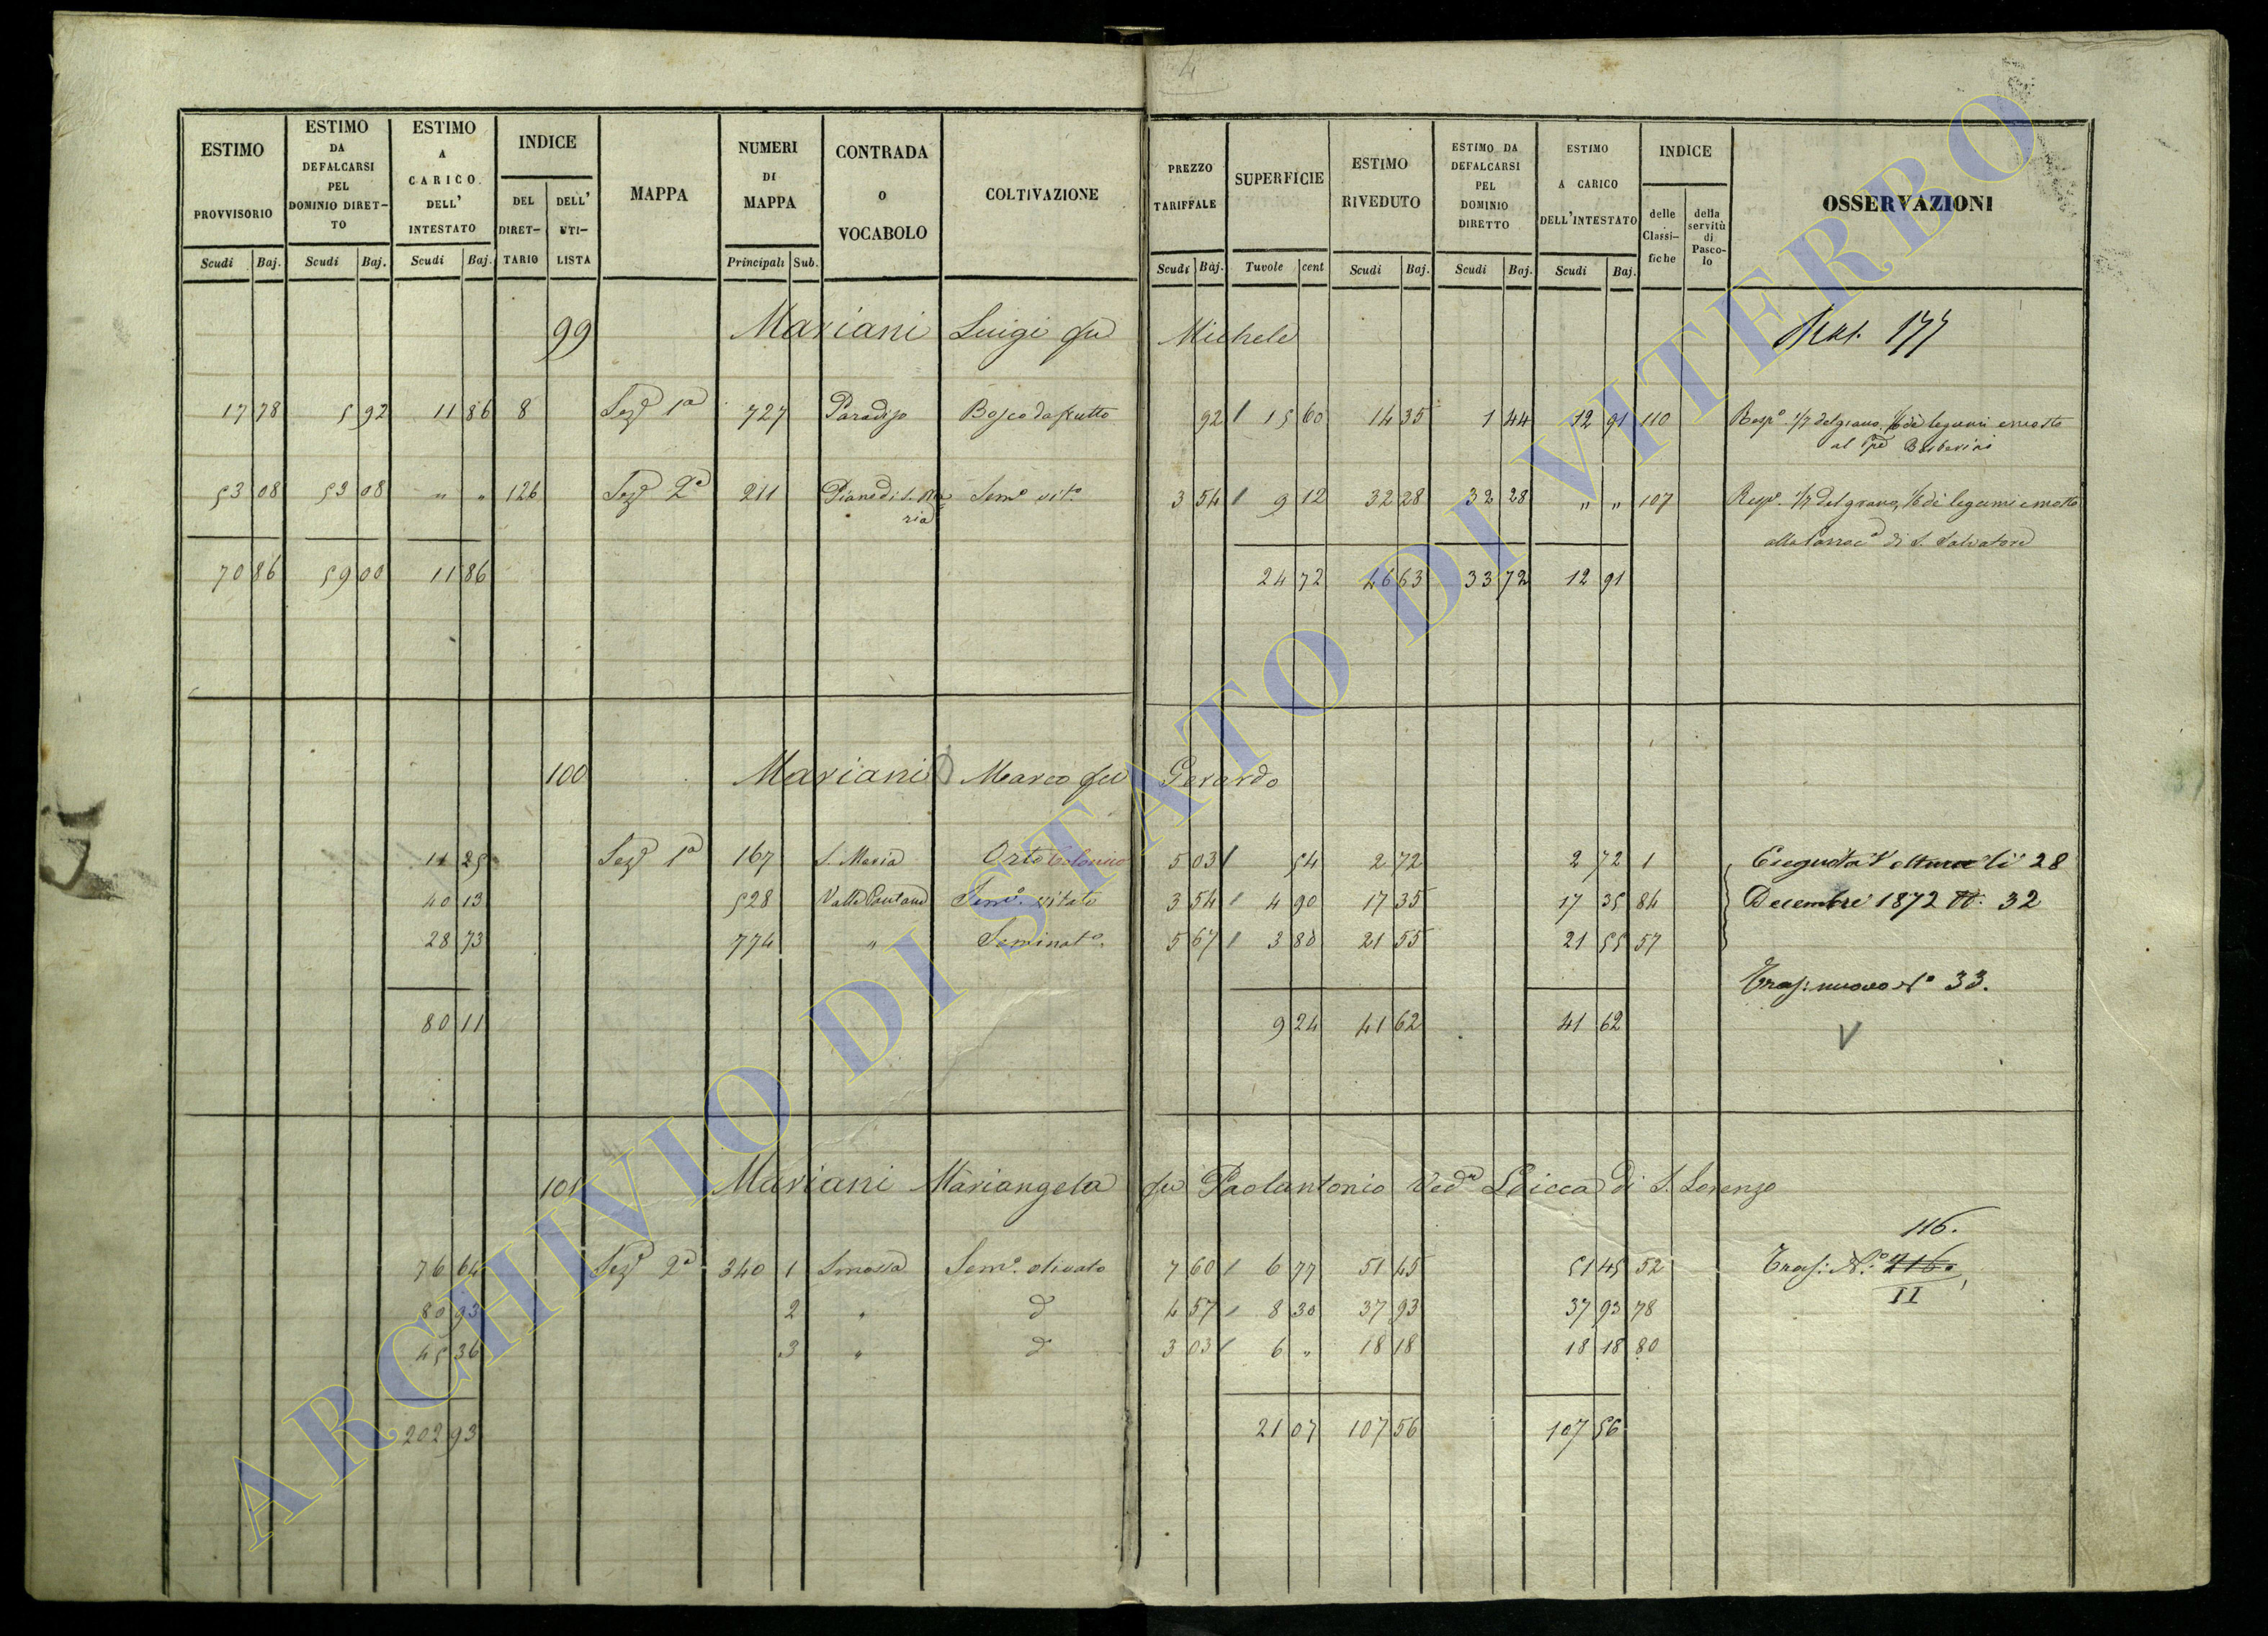 4
ESTIMO PROVVISORIO
ESTIMO DA DEFALCARSI PEL DOMINIO DIRETTO
ESTIMO A CARICO DELL' INTESTATO
INDICE
DEL DIRETTARIO
DELL' UTILISTA
MAPPA
NUMERI DI MAPPA
CONTRADA O VOCABOLO
COLTIVAZIONE
PREZZO TARIFFALE
SUPERFICIE
ESTIMO RIVEDUTO
ESTIMO DA DEFALCARSI PEL DOMINIO DIRETTO
ESTIMO A CARICO DELL'INTESTATO
INDICE
delle Classifiche
della servitù di Pascolo
OSSERVAZIONI
Scudi Baj. Scudi Baj. Scudi Baj. Principali Sub. Scudi Baj. Tuvole cent Scudi Baj. Scudi Baj. Scudi Baj.
99 Mariani Luigi fu Michele 177
17 78 5 92 11 86 8 Sezе 1a 727 Paradiso Bosco da frutto 92 15 60 14 35 1 44 12 91 110 Respo 1/7 del grano, 1/6 di legumi e mosto
al Ppe Barberini
53 08 53 08 " " 126 Seze 2a 211 Piane di S. Ma- Semo vito 3 54 9 12 32 28 32 28 " " 107 Respo 1/7 del grano, 1/6 di legumi e mosto
ria alla Parroca di S. Salvatore
70 86 59 00 11 86 24 72 46 63 33 72 12 91
100 Mariani Marco fu Gerardo
11 25 Seze 1a 167 S. Maria Orto Colonico 5 03 54 2 72 2 72 1 Eseguita Voltura li 28
40 13 528 Valle Pantano Semo. vitato 3 54 4 90 17 35 17 35 84 Decembre 1872 N. 32
28 73 774 " Seminato. 5 67 3 80 21 55 21 55 57
Tras: nuovo No 33.
80 11 9 24 41 62 41 62
V
101 Mariani Mariangela fu Paolantonio Veda di S. Lorenzo
116.
76 64 Seze 2a 340 1 Smossa Semo. olivato 7 60 6 77 51 45 51 45 52 Tras: No. 216.
II
80 93 2 " d 4 57 8 30 37 93 37 93 78
45 36 3 " d 3 03 6 " 18 18 18 18 80
202 93 21 07 107 56 107 56
ARCHIVIO DI STATO DI VITERBO